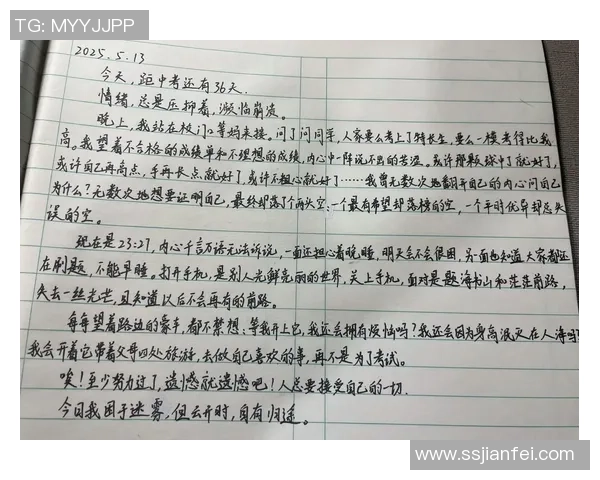 TG: MYYJJPP
2025.5.13
今天，距中考还有36天.
情绪，总是压抑着，濒临崩溃。
晚上，我站在校门等妈来接。问了问同学，人家要么考上了特长生，要么一模考得比我
高。我望着不合格的成绩单和不理想的成绩，内心中一阵说不出的苦涩。或许那颗球中了就好了，
或许自己再高点，手再长点就好了，或许不粗心就好了……我曾无数次地翻开自己的内心问自己
为什么？无数次地想要证明自己，最终却落了个两头空：一个最有希望却落榜的空，一个平时优异却总失
误的空。
现在是23:27，内心千言万语无法诉说，一面还担心着晚睡，明天会不会很困，另一面也知道大家都还
在刷题，不能早睡。打开手机，是别人光鲜亮丽的世界，关上手机，面对是题海书山和茫茫前路，
失去一丝光芒，且知道以后不会再有的前路。
每每望着路边的豪车，都不禁想：等我开上它，我还会拥有烦恼吗？我还会因为身高泯灭在人海吗？
我会开着它带着父母四处旅游，去做自己喜欢的事，再不是为了考试。
唉！至少努力过了，遗憾就遗憾吧！人总要接受自己的一切.
今日我困于迷雾，但云开时，自有归途。
www.ssjianfei.com